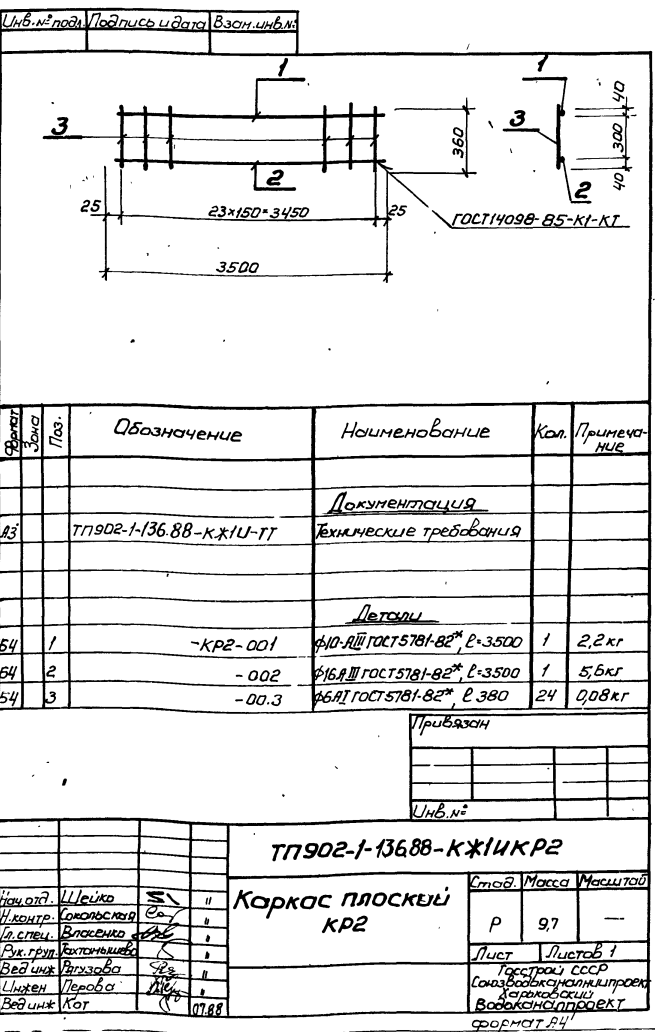 Инв.№ подл. Подпись и дата Взам.инв.№
1
3
2
360
25
23×150=3450
25
3500
ГОСТ14098-85-К1-КТ
1
3
2
40
300
40
Формат Зона Поз. Обозначение Наименование Кол. Примеча-
ние
Документация
А3 ТП902-1-136.88-КЖ1И-ТТ Технические требования
Детали
Б4 1 -КР2-001 ф10-АIII ГОСТ5781-82*, ℓ=3500 1 2,2кг
Б4 2 -002 ф16АIII ГОСТ5781-82*, ℓ=3500 1 5,6кг
Б4 3 -00.3 ф6АI ГОСТ5781-82*, ℓ 380 24 0,08кг
Привязан
Инв.№
ТП902-1-136.88-КЖ1ИКР2
Каркас плоский
КР2
Стад. Масса Масштаб
Р 9,7 —
Лист Листов 1
Госстрой СССР
Союзводоканалниипроект
Харьковский
Водоканалпроект
Нач.отд. Шейко "
Н.контр. Сокольская "
Гл.спец. Власенко "
Рук.груп. Тахтамышева "
Вед инж Рагузова "
Инжен Перова "
Вед инж Кот 07.88
формат А4